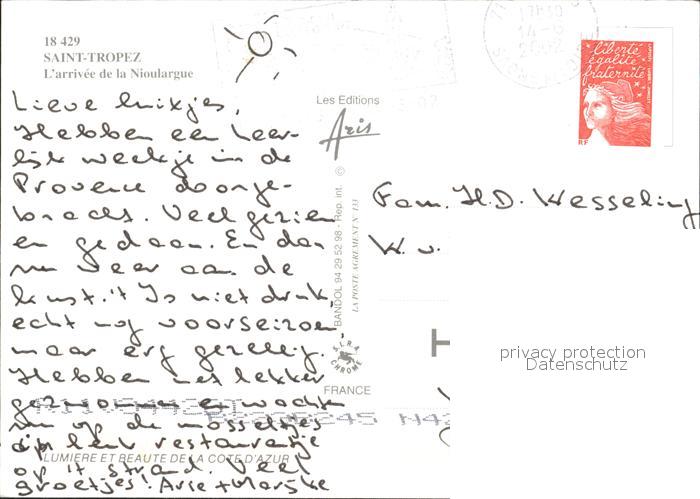 18 429
SAINT-TROPEZ
L'arrivée de la Nioulargue
Lieve luitjes,
Hebben een heer-
lijk weekje in de
Provence doorge-
bracht. Veel gezien
en gedaan. En dan
nu weer aan de
kust. 't Is niet druk,
echt nog voorseizoen,
maar erg gezellig.
Hebben net lekker
gezwommen en wachten
nu op de mosseltjes
op leuk restaurantje
op 't strand. Veel
groetjes! Arie + Marijke
LUMIERE ET BEAUTE DE LA COTE D'AZUR
Les Editions
Aris
BANDOL 94 29 52 98 - Rep. int. ©
LA POSTE AGREMENT N° 133
S.L.R.A.
CHROME
FRANCE
17H30
14-6
2002
liberté
égalité
fraternité
RF
Fam. H.D. Wesseling
W. v.
H
privacy protection
Datenschutz